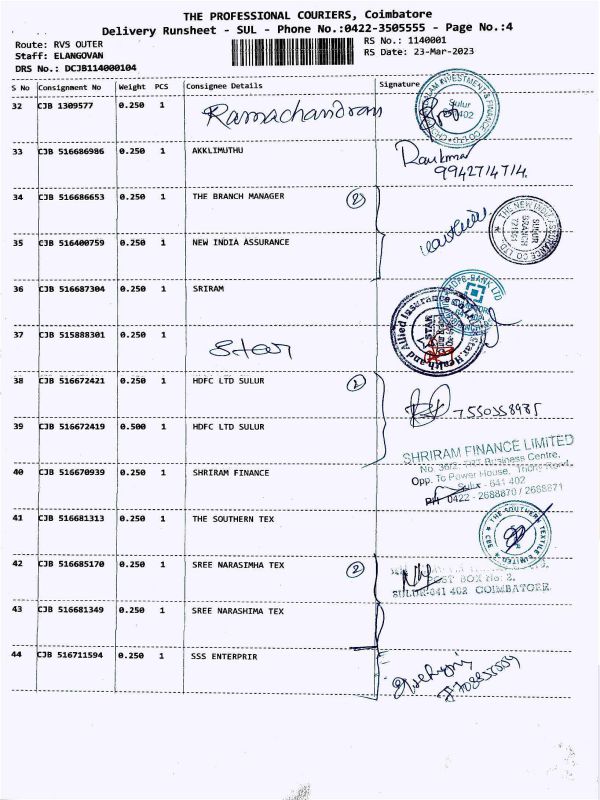 THE PROFESSIONAL COURIERS, Coimbatore
Delivery Runsheet - SUL - Phone No.:0422-3505555 - Page No.:4
Route: RVS OUTER
RS No.: 1140001
Staff: ELANGOVAN
RS Date: 23-Mar-2023
DRS No.: DCJB114000104
S No Consignment No Weight PCS Consignee Details Signature
32 CJB 1309577 0.250 1 Ramachandram
Sulur
33 CJB 516686986 0.250 1 AKKLIMUTHU
9942714714.
34 CJB 516686653 0.250 1 THE BRANCH MANAGER 2
THE NEW INDIA ASSURANCE CO. LTD.
SULUR
BRANCH
35 CJB 516400759 0.250 1 NEW INDIA ASSURANCE
36 CJB 516687304 0.250 1 SRIRAM
HDFC BANK LTD
Star Health and Allied Insurance Co Ltd
STAR
37 CJB 515888301 0.250 1 Star
38 CJB 516672421 0.250 1 HDFC LTD SULUR 2
39 CJB 516672419 0.500 1 HDFC LTD SULUR
SHRIRAM FINANCE LIMITED
Business Centre,
Opp. To Power House, Trichy Road,
40 CJB 516670939 0.250 1 SHRIRAM FINANCE
Sulur - 641 402
PH 0422 - 2688870 / 2688871
41 CJB 516681313 0.250 1 THE SOUTHERN TEX
THE SOUTHERN TEXTILE LIMITED
42 CJB 516685170 0.250 1 SREE NARASIMHA TEX 2
POST BOX No: 2.
SULUR-641 402 COIMBATORE
43 CJB 516681349 0.250 1 SREE NARASHIMA TEX
44 CJB 516711594 0.250 1 SSS ENTERPRIR